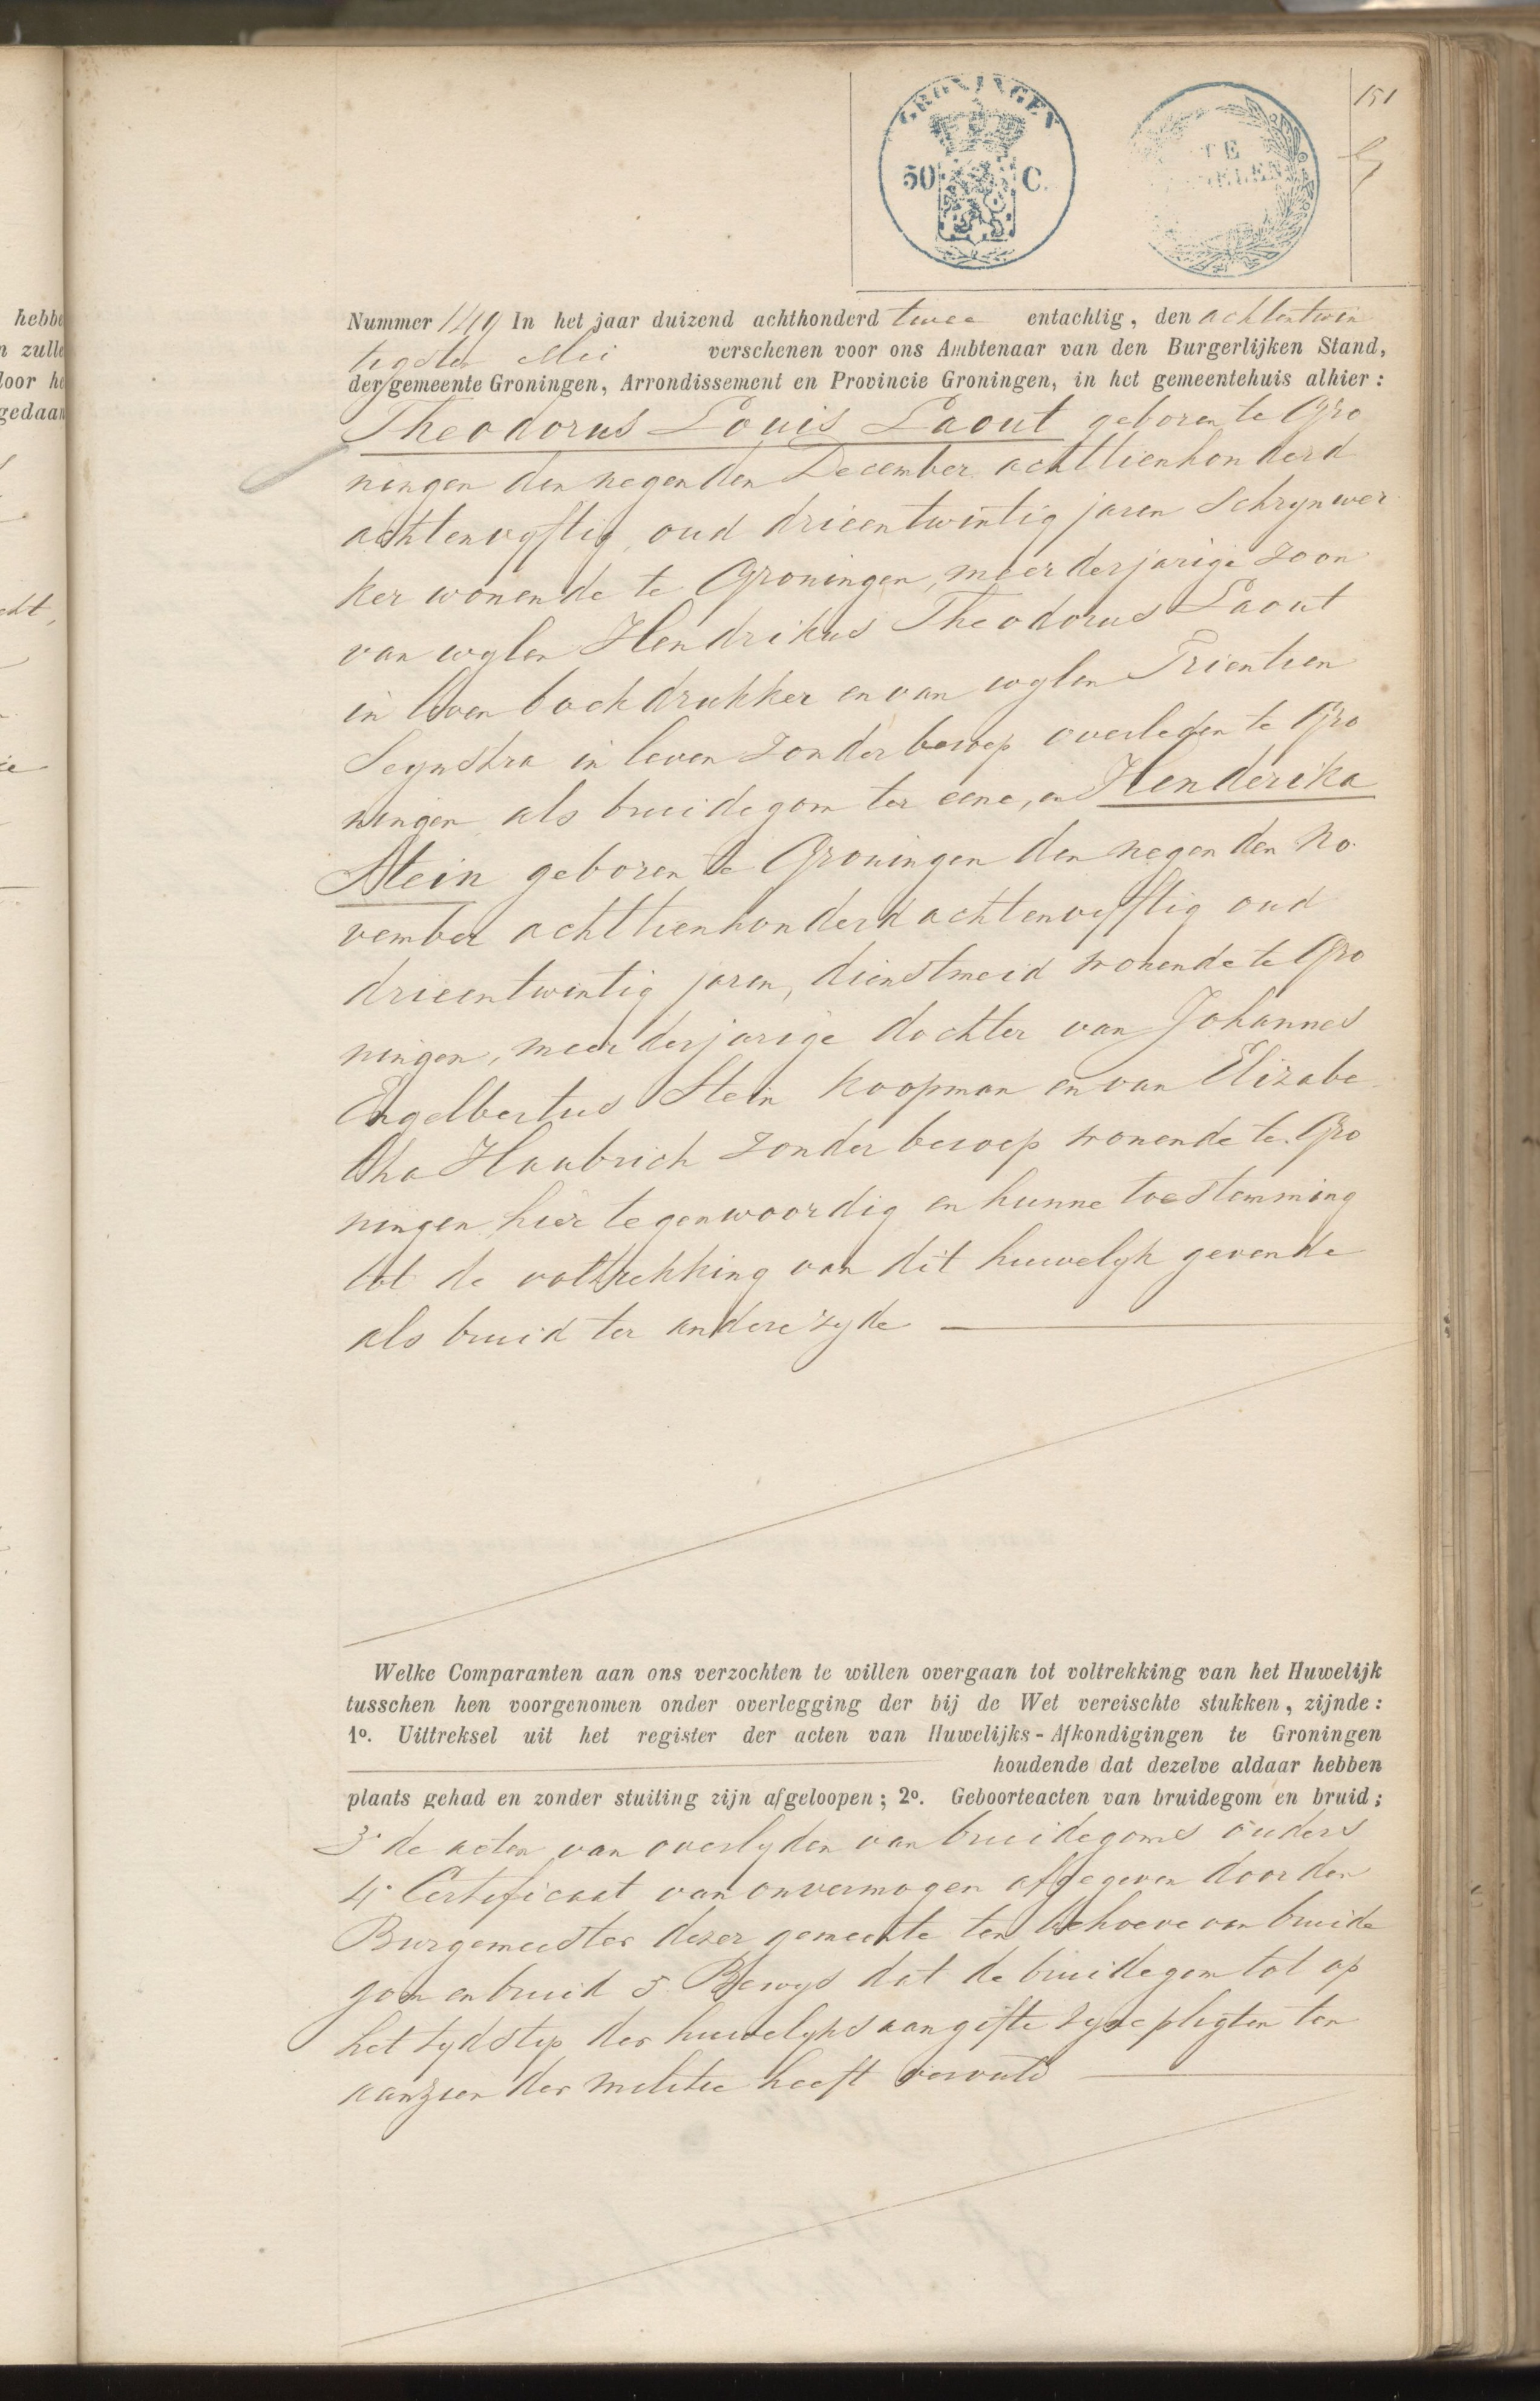 151
GRONINGEN
50 C.
TE
hebbe
n zulle
door he
gedaan
Nummer 149 In het jaar duizend achthonderd twee entachtig, den achtentwin
tigsten Mei verschenen voor ons Ambtenaar van den Burgerlijken Stand,
der gemeente Groningen, Arrondissement en Provincie Groningen, in het gemeentehuis alhier:
Theodorus Louis Laout geboren te Gro
ningen den negenden December achttienhonderd
achtenvyftig, oud drieentwintig jaren Schrynwer
ker wonende te Groningen, meerderjarige zoon
van wylen Hendrikus Theodorus Laout
in leven boekdrukker en van wylen Trientien
Seynstra in leven zonder beroep overleden te Gro
ningen als bruidegom ter eene, en Henderika
Stein geboren te Groningen den negenden No
vember achttienhonderd achtenvyftig oud
drieentwintig jaren, dienstmeid wonende te Gro
ningen, meerderjarige dochter van Johannes
Engelbertus Stein koopman en van Elizabe
tha Haubrich zonder beroep wonende te Gro
ningen hier tegenwoordig en hunne toestemming
tot de voltrekking van dit huwelyk gevende
als bruid ter andere zyde
Welke Comparanten aan ons verzochten te willen overgaan tot voltrekking van het Huwelijk
tusschen hen voorgenomen onder overlegging der bij de Wet vereischte stukken, zijnde:
1º. Uittreksel uit het register der acten van Huwelijks-Afkondigingen te Groningen
houdende dat dezelve aldaar hebben
plaats gehad en zonder stuiting zijn afgeloopen; 2º. Geboorteacten van bruidegom en bruid;
3º de acten van overlyden van bruidegoms ouders
4º Certificaat van onvermogen afgegeven door den
Burgemeester dezer gemeente ten behoeve van bruide
gom en bruid 5º Bewys dat de bruidegom tot op
het tydstip der huwelyks aangifte zyne pligten ten
aanzien der militie heeft vervuld